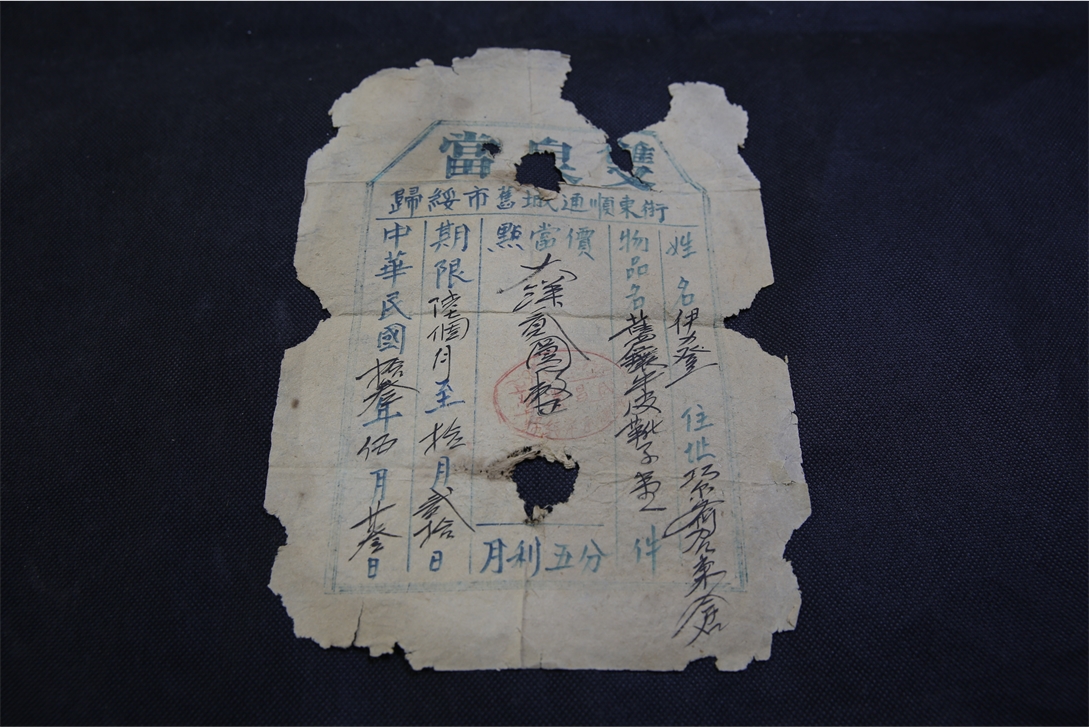 雙泉當
歸綏市舊城通順東街
姓名伊力登 住址
物品名舊鑲牛皮靴子壹件
點當價大洋壹圓整
月利五分
期限陸個月至拾月貳拾日
中華民國拾叁年伍月廿叁日